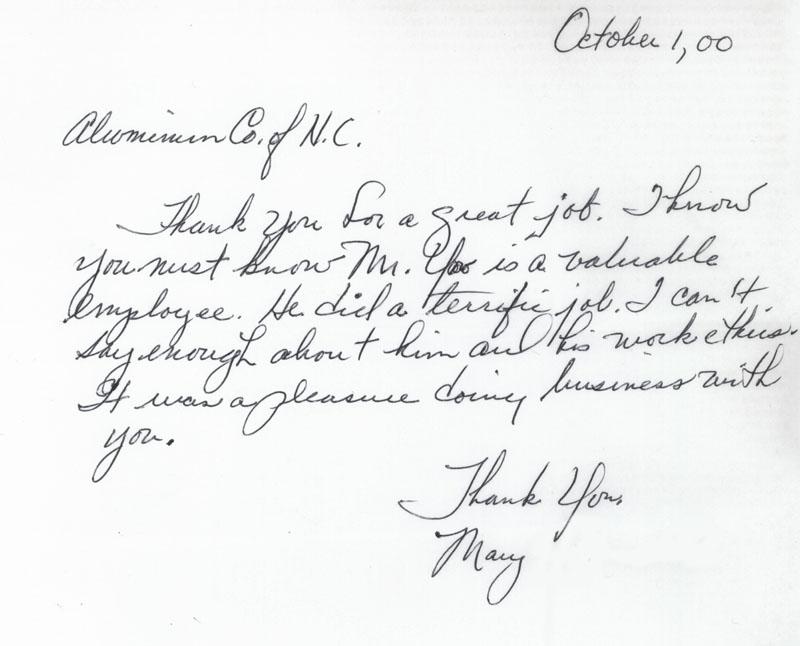 October 1, 00
Aluminum Co. of N.C.
Thank you for a great job. I know
you must know Mr. Yoo is a valuable
employee. He did a terrific job. I can't
say enough about him and his work ethics.
It was a pleasure doing business with
you.
Thank You,
Mary